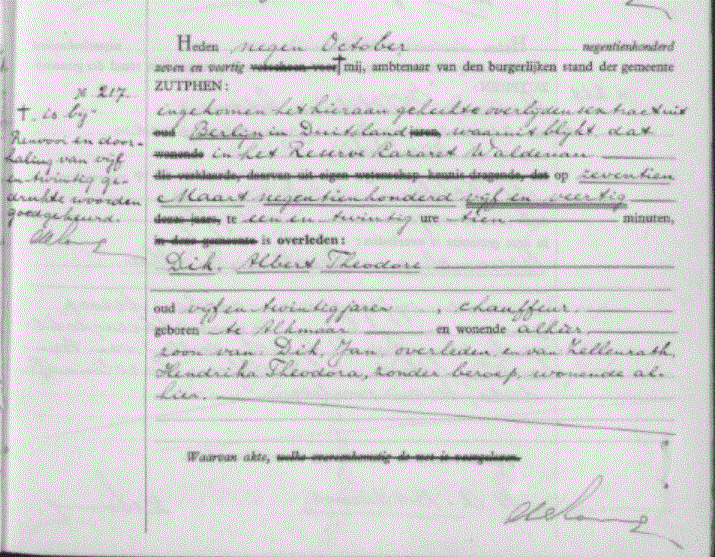 Heden negen October negentienhonderd
zeven en veertig verscheen voor † mij, ambtenaar van den burgerlijken stand der gemeente
ZUTPHEN:
ingekomen het hieraan gehechte overlijdensextract uit
oud Berlijn in Duitsland jaren, waaruit blijkt dat
wonende in het Reserve Lazaret Waldenau
die verklaarde, daarvan uit eigen wetenschap kennis dragende, dat op zeventien
Maart negentienhonderd vijf en veertig
dezes jaars, te een en twintig ure tien minuten,
in deze gemeente is overleden:
Dik, Albert Theodore
oud vijf en twintig jaren, chauffeur,
geboren te Alkmaar en wonende alhier,
zoon van: Dik, Jan, overleden, en van Zellenrath,
Hendrika Theodora, zonder beroep, wonende al-
hier.
Waarvan akte, welke overeenkomstig de wet is voorgelezen.
№ 217.
†. is bij
Renvooi en door-
haling van vijf
en twintig ge-
drukte woorden
goedgekeurd.